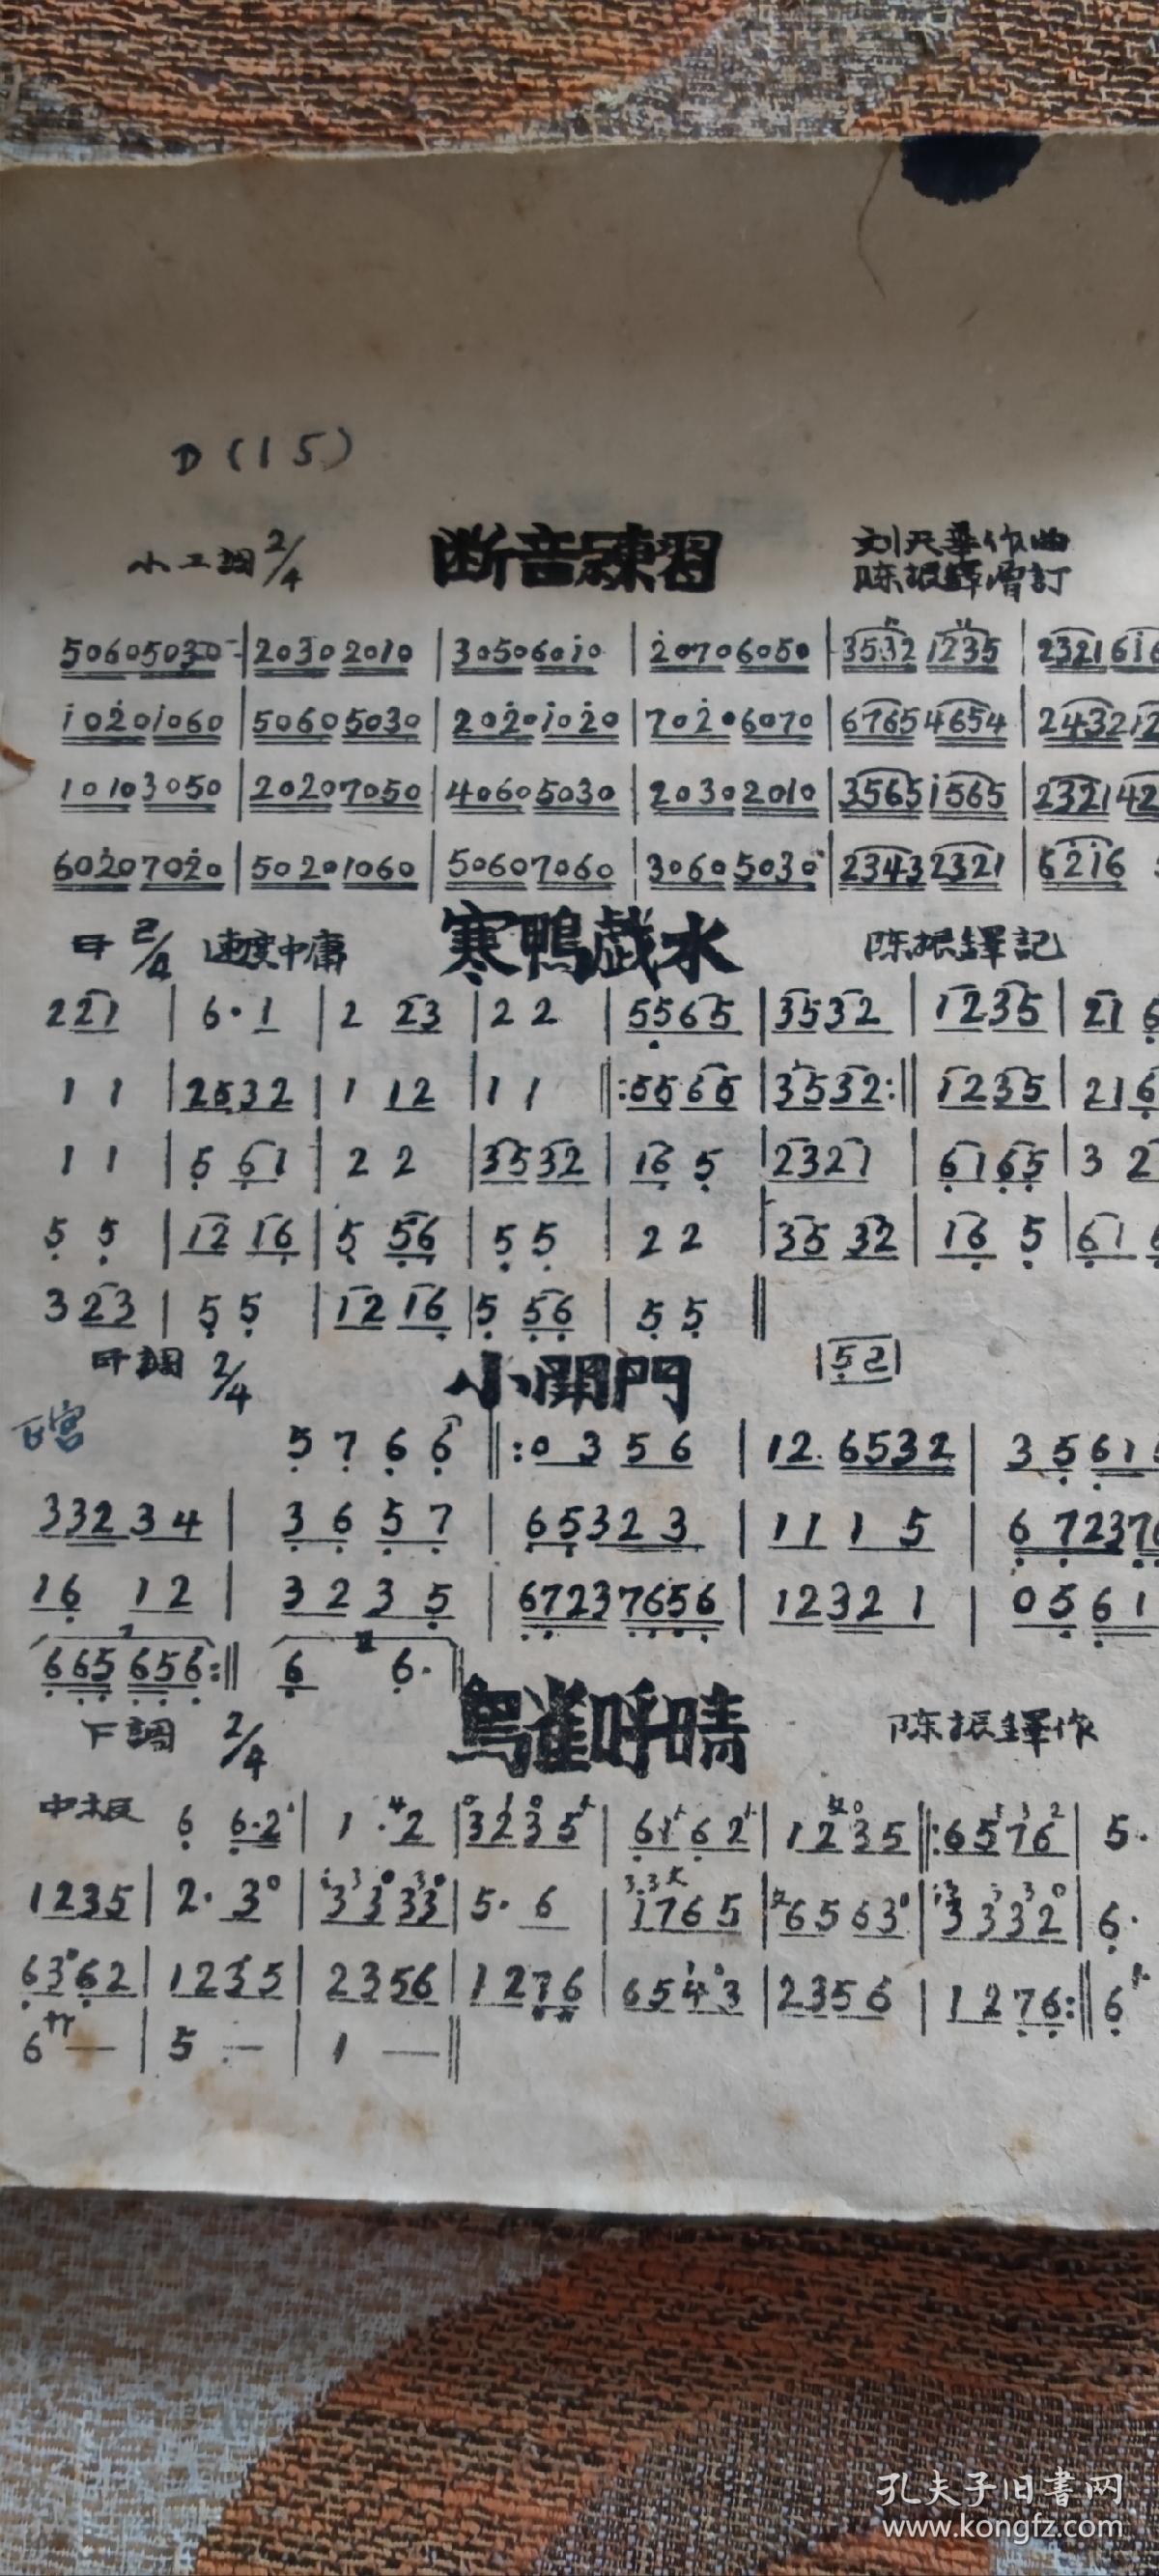 D (1 5)
小工调 2/4 断音練習 刘天華作曲
陈振鐸增訂
50605030 | 20302010 | 305060i0 | 2̇0706050 | 3532 1235 | 2321 6i6
i02̇0i060 | 50605030 | 202̇0i02̇0 | 702̇06070 | 6765 4654 | 2432 12
10103050 | 20207050 | 40605030 | 20302010 | 3565 i565 | 2321 42
602̇0702̇0 | 50201060 | 50607060 | 30605030 | 2343 2321 | 62̇i6
2/4 速度中庸 寒鴨戲水 陈振鐸記
2 21 | 6· 1 | 2 23 | 2 2 | 5565 | 3532 | 1235 | 21 6
1 1 | 2532 | 1 12 | 1 1 ‖: 55 65 | 3532 :‖ 1235 | 21 6
1 1 | 5 61 | 2 2 | 3532 | 16 5 | 2321 | 6165 | 3 2
5 5 | 12 16 | 5 56 | 5 5 | 2 2 | 35 32 | 16 5 | 61
3 23 | 5 5 | 12 16 | 5 56 | 5 5 ‖
調 2/4 小開門 |52|
宮
5 7 6 6 ‖: 0 3 5 6 | 12. 6532 | 3 5 61
332 34 | 3 6 5 7 | 65323 | 11 1 5 | 6 7237
16 12 | 3 2 3 5 | 67237656 | 12321 | 0 5 61
665 656 :‖ 6 6· ‖
下調 2/4 鳥雀呼晴 陈振鐸作
中板 6 6·2 | 1 · 2 | 3235 | 6162 | 1235 ‖: 6576 | 5·
1235 | 2· 3 | 33 33 | 5· 6 | 1765 | 6563 | 3332 | 6·
6362 | 1235 | 2356 | 1276 | 6543 | 2356 | 1276 :‖ 6
6 — | 5 — | 1 — ‖
孔夫子旧書网
www.kongfz.com